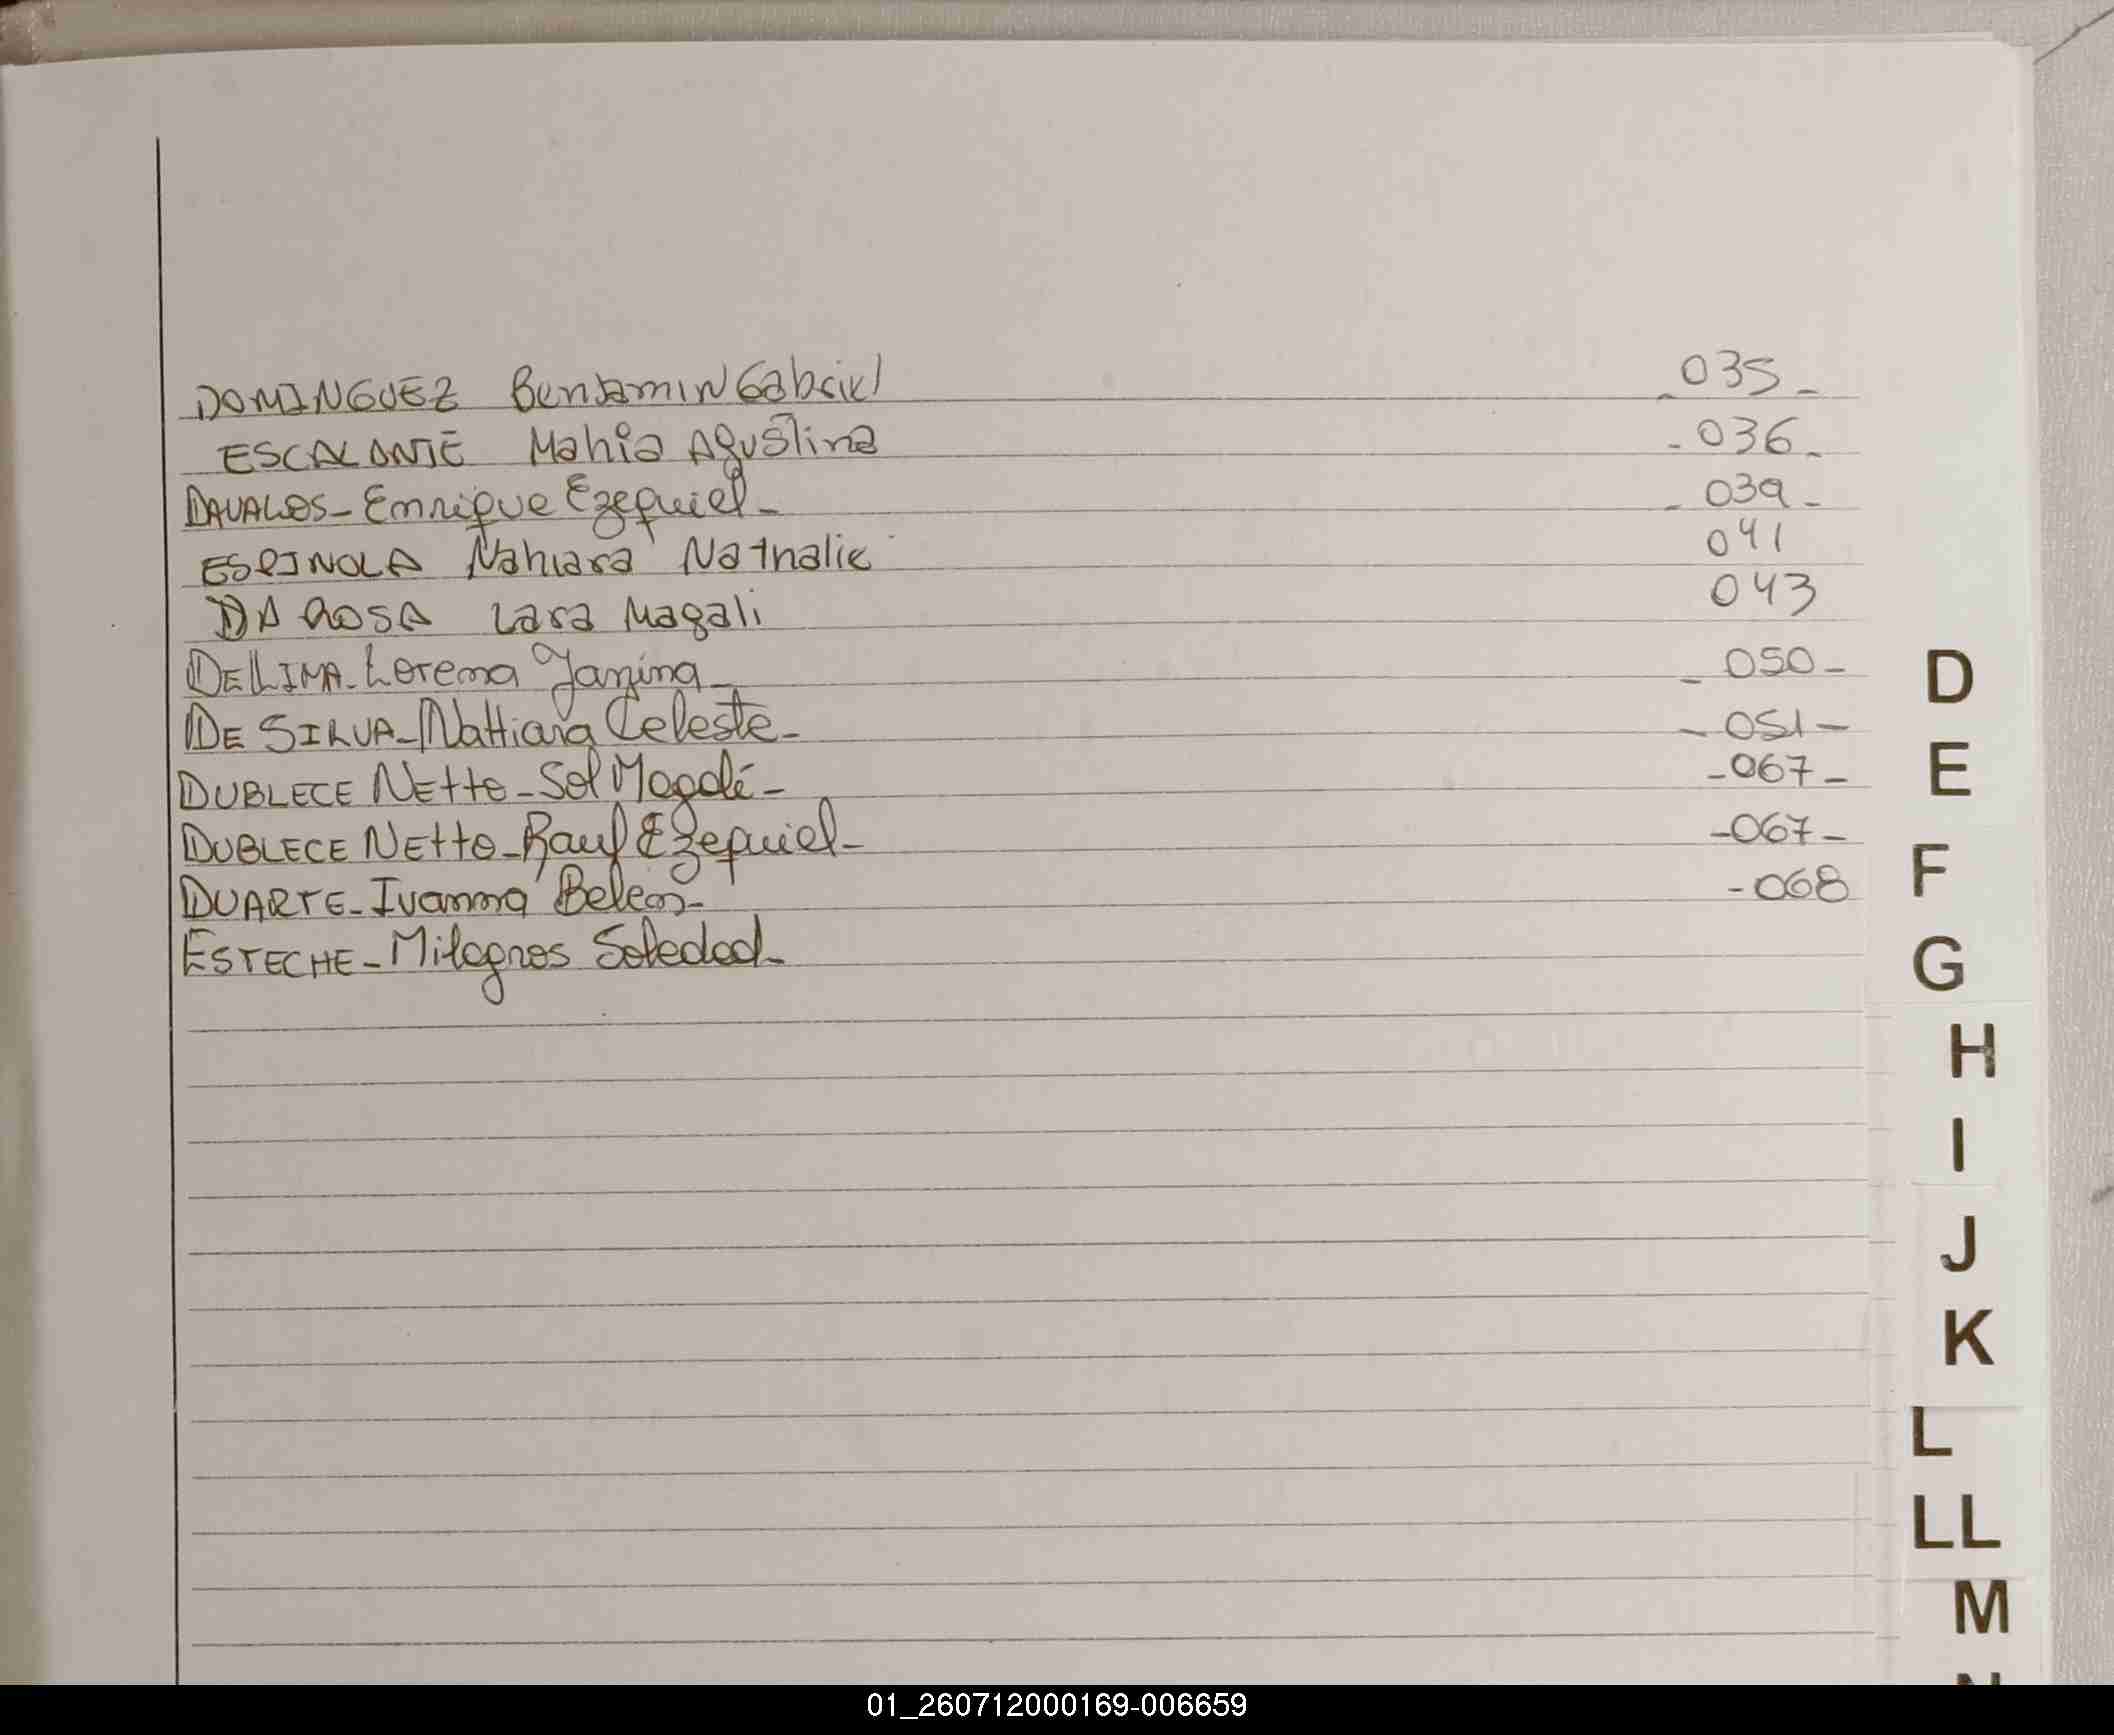 DOMINGUEZ Benjamin Gabriel 035-
ESCALANTE Mahia Agustina -036-
DAVALOS-Enrique Ezequiel- -039-
ESPINOLA Nahiara Nathalie 041
DA ROSA Lara Magali 043
DELLIMA-Lorena Janina- -050-
DE SILVA-Nattiara Celeste- -051-
DUBLECE NEtto-Sol Magalí- -067-
DUBLECE NEtto-Raul Ezequiel- -067-
DUARTE-Ivanna Belen- -068
ESTECHE-Milagros Soledad-
D
E
F
G
H
I
J
K
L
LL
M
01_260712000169-006659